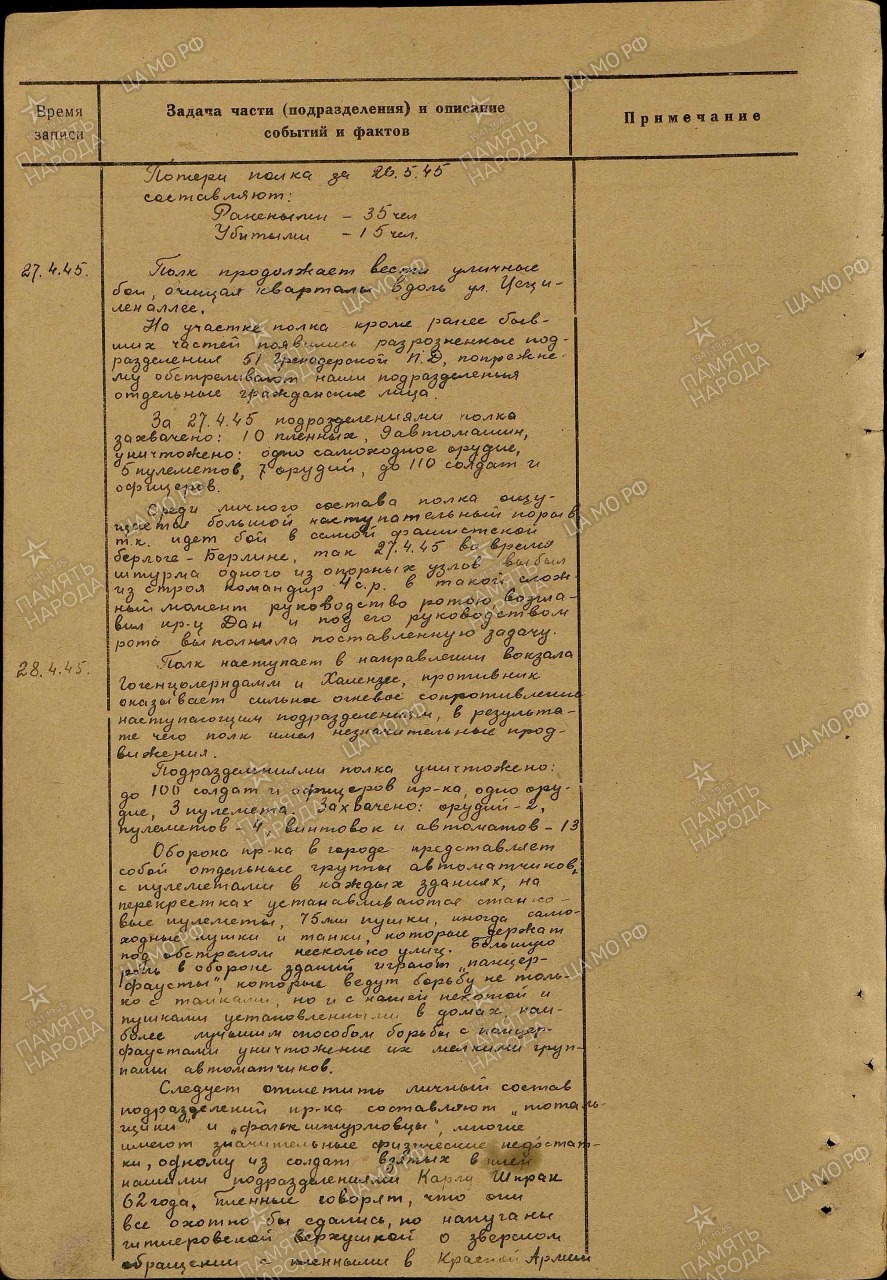 Время записи
Задача части (подразделения) и описание событий и фактов
Примечание
Потери полка за 26.5.45
составляют:
Ранеными - 35 чел
Убитыми - 15 чел.
27.4.45.
Полк продолжает вести уличные
бои, очищая кварталы вдоль ул. Цеци-
леналлее.
На участке полка кроме ранее быв-
ших частей появились разрозненные под-
разделения 51 Гренодерской П.Д, попрежне-
му обстреливают наши подразделения
отдельные гражданские лица.
За 27.4.45 подразделениями полка
захвачено: 10 пленных, 9 автомашин,
уничтожено: одно самоходное орудие,
5 пулеметов, 7 орудий, до 110 солдат и
офицеров.
Среди личного состава полка ощу-
щается большой наступательный порыв
т.к. идет бой в самой фашистской
берлоге - Берлине, так 27.4.45 во время
штурма одного из опорных узлов выбыл
из строя командир 4 с.р. в такой слож-
ный момент руководство ротою возгла-
вил кр-ц Дан и под его руководством
рота выполнила поставленную задачу.
28.4.45.
Полк наступает в направлении вокзала
Гогенцолерндамм и Халензее, противник
оказывает сильное огневое сопротивление
наступающим подразделениям, в результа-
те чего полк имел незначительные прод-
вижения.
Подразделениями полка уничтожено:
до 100 солдат и офицеров пр-ка, одно ору-
дие, 3 пулемета. Захвачено: орудий - 2,
пулеметов - 4, винтовок и автоматов - 13
Оборона пр-ка в городе представляет
собой отдельные группы автоматчиков,
с пулеметами в каждых зданиях, на
перекрестках устанавливаются станко-
вые пулеметы, 75 мм пушки, иногда само-
ходные пушки и танки, которые держат
под обстрелом несколько улиц. Большую
роль в обороне зданий играют "панцер-
фаусты", которые ведут борьбу не толь-
ко с танками, но и с нашей пехотой и
пушками установленными в домах, наи-
более лучшим способом борьбы с панцер-
фаустами уничтожение их мелкими груп-
пами автоматчиков.
Следует отметить личный состав
подразделений пр-ка составляют "тоталь-
щики" и "фолькштурмовцы", многие
имеют значительные физические недостат-
ки, одному из солдат взятых в плен
нашими подразделениями Карлу Шпрак
62 года. Пленные говорят, что они
все охотно бы сдались, но напуганы
гитлеровской верхушкой о зверском
обращении с пленными в Красной Армии
ПАМЯТЬ НАРОДА
ЦАМО.РФ